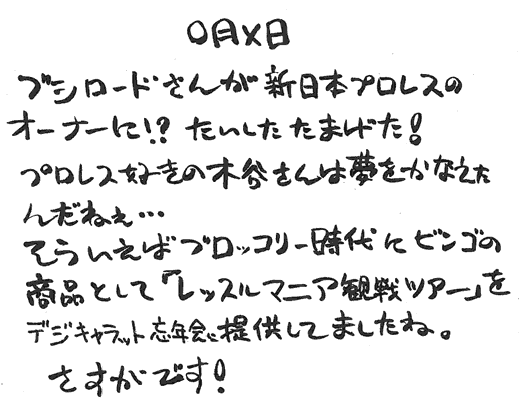 〇月×日
ブシロードさんが新日本プロレスの
オーナーに!? たいしたたまげた!
プロレス好きの木谷さんは夢をかなえた
んだねぇ…
そういえばブロッコリー時代にビンゴの
商品として「レッスルマニア観戦ツアー」を
デジキャラット忘年会に提供してましたね。
さすがです!